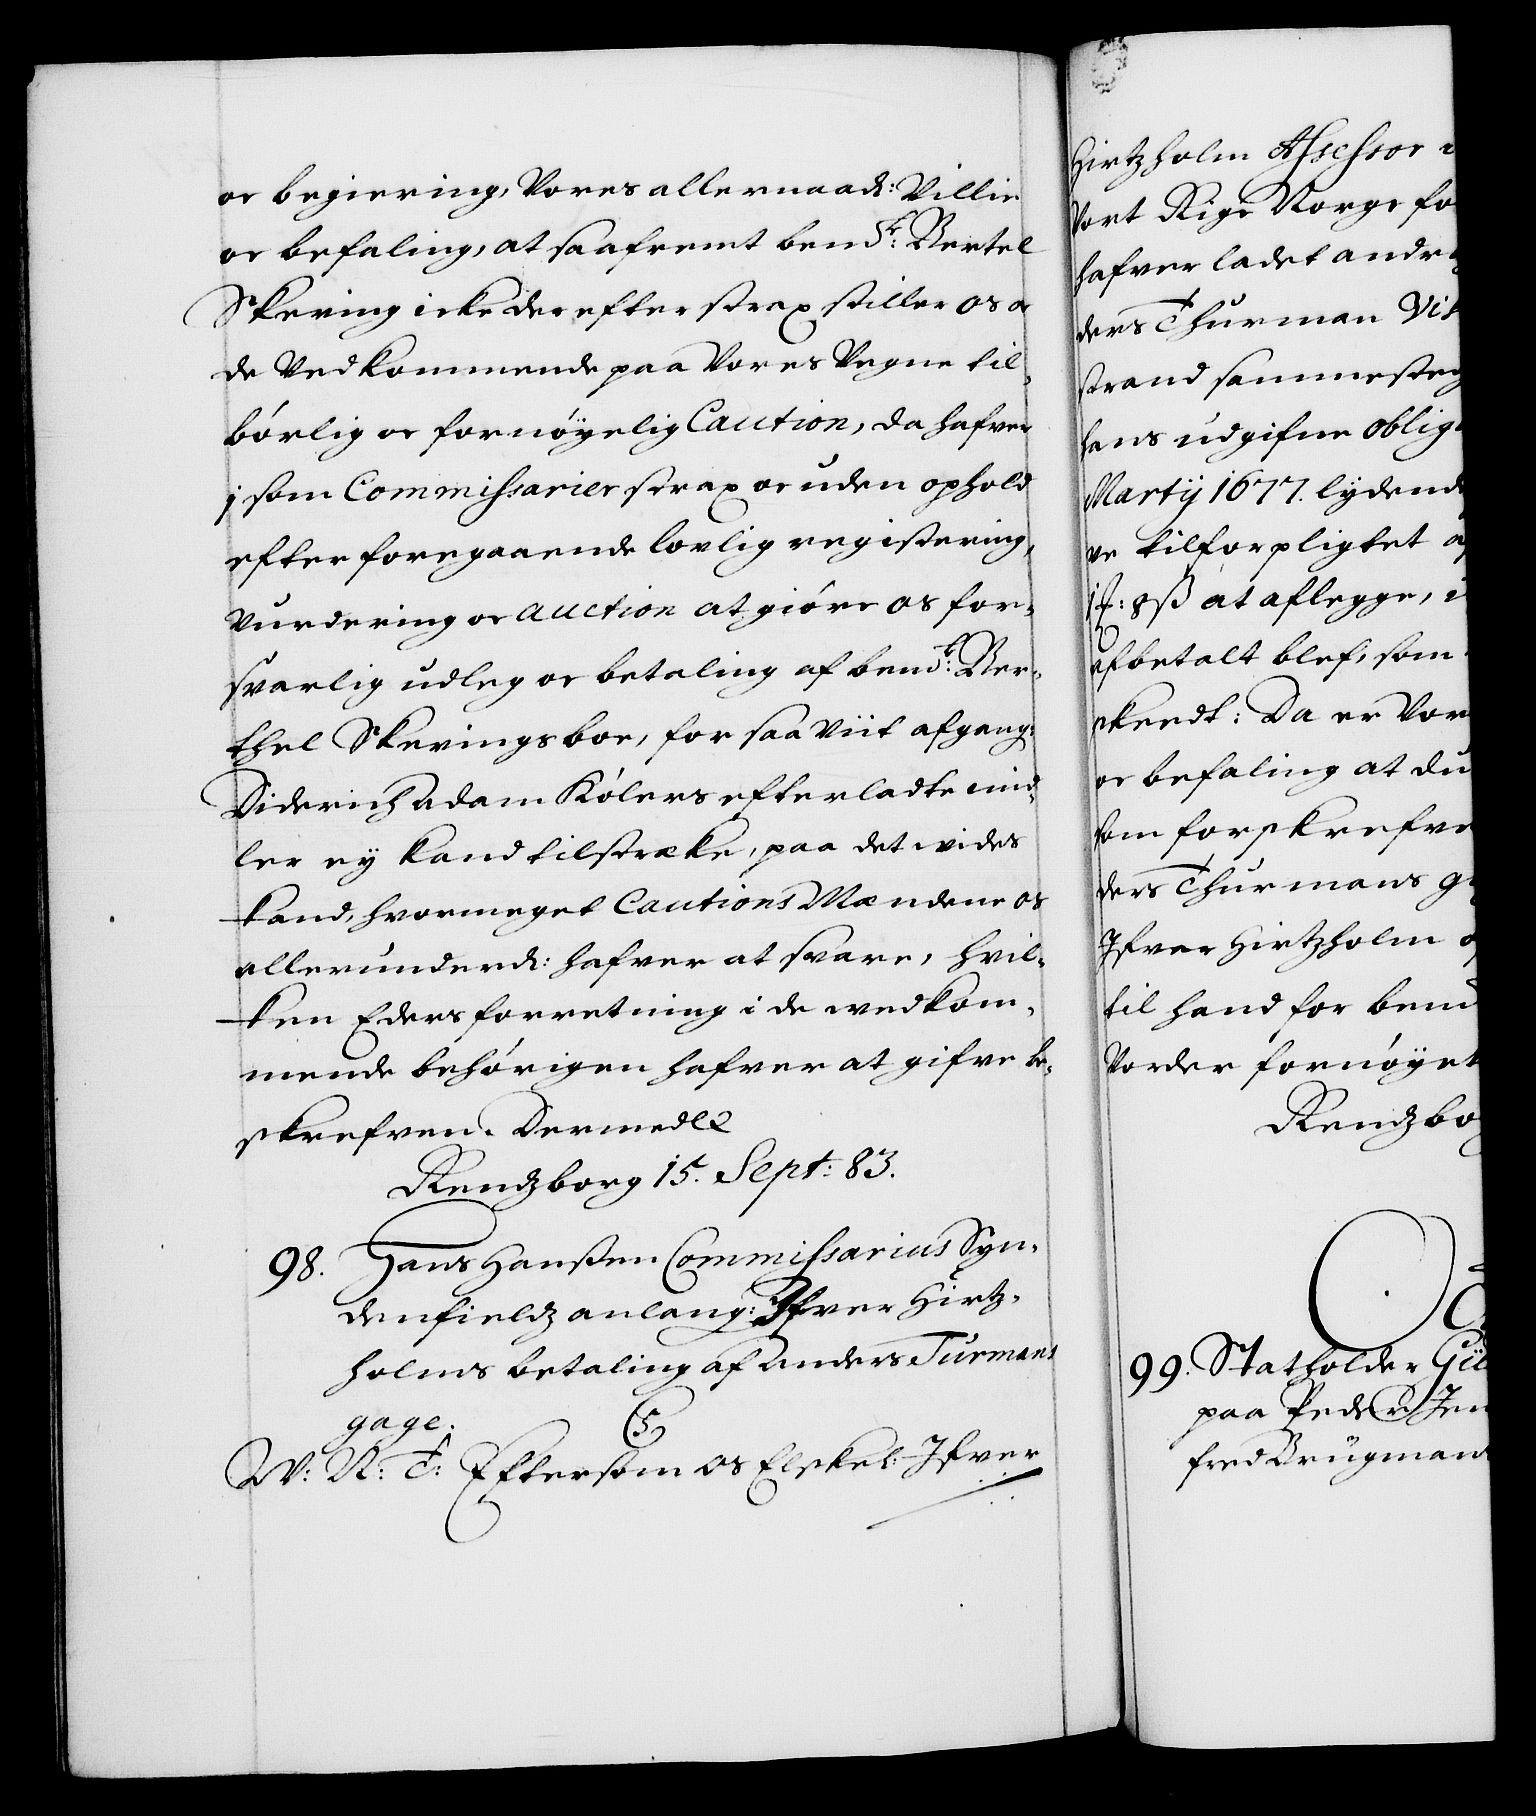 oc begiering, Vores allernaad: Villie
oc befaling, at saafremt bend:te Bertel
Skering icke derefter strax stiller os oc
de Vedkommende paa Vores Vegne til-
børlig oc fornøyelig Caution, da hafver
j som Commissarier strax oc uden ophold
efter foregaaende lovlig registering,
Vurdering oc auction at giøre os for-
svarlig udleg oc betaling af bend:te Ber-
thel Skerings boe, for saa viit afgang:
Diderich Adam Kølers efterladte mid-
ler ey kand tilstrække, paa det vides
kand, hvormeget Cautions Mændene os
allerunderd: hafver at svare, hvil-
ken Eders forretning i de wedkom-
mende behørigen hafver at gifve be-
skrefven. Dermed etc
Rendzborg 15. Sept: 83.
98. Hans Hanssen Commissarius Syn-
denfieldz anlang: Ifver Hirtz-
holms betaling af Anders Turmans
gage.
W: N: T: Eftersom os Elskel: Ifver
Hirtzholm Assessor i
Vort Rige Norge fo
hafver ladet andra
ders Thurman Vis
strand sammesteg
hans udgifne oblig
Martij 1677. lydend
ve tilforpligtet
8 ß at aflegge, i
afbetalt blef, som
skeedt: Da er Vor
oc befaling at du
som forskrefve
ders Thurmans g
Ifver Hirtzholm
til hand for bend
Vorder fornøyet
Rendzbo
99. Statholder Gül
paa Peder Jen
fred Brügman